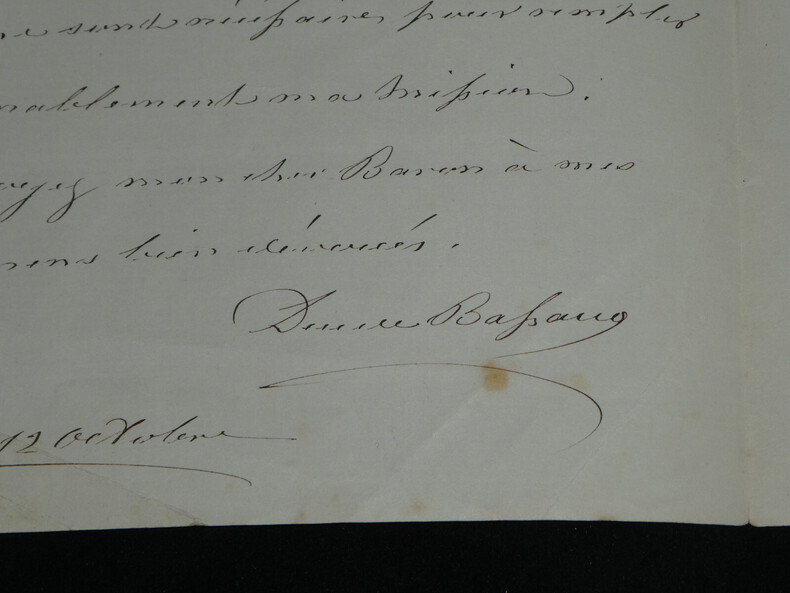 me sont nécessaires pour remplir
nablement ma mission.
oyez mon cher Baron à mes
mens bien dévoués.
Duc de Bassano
12 octobre